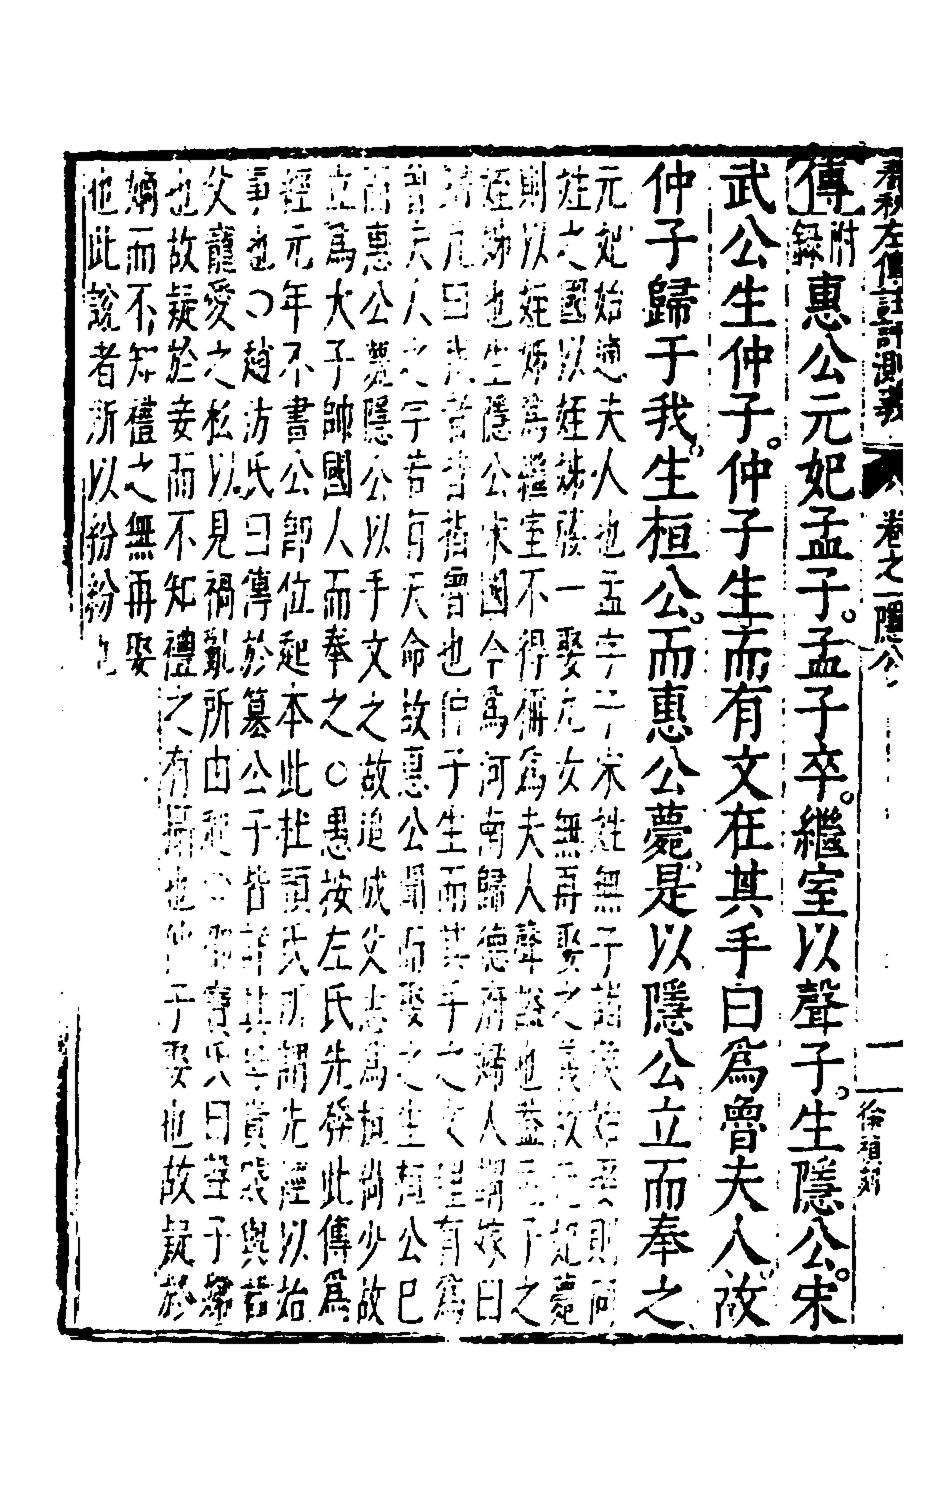 春秋左傳註評測義 卷之一 隱公 一 徐禎刻
傳附錄惠公元妃孟子孟子卒繼室以聲子生隱公宋
武公生仲子仲子生而有文在其手曰爲魯夫人故
仲子歸于我生桓公而惠公薨是以隱公立而奉之
元妃始適夫人也孟字子宋姓無子諡
姪之國以姪娣媵一娶九女無再娶之義故元妃薨
則以姪娣爲繼室不得稱爲夫人聲諡也蓋孟子之
姪娣也生隱公宋國今爲河南歸德府婦人謂嫁曰
歸凡曰我者皆指魯也仲子生而其手之文理有爲
魯夫人之字若有天命故惠公聞而娶之生桓公已
而惠公薨隱公以手文之故追成父志爲桓尚少故
立爲太子帥國人而奉之○愚按左氏先發此傳爲
經元年不書公即位起本此杜預氏所謂先經以始
事也○趙汸氏曰傳於篡公子皆詳其母貴賤與君
父寵愛之私以見禍亂所由起○ 氏曰聲子歸
也故疑於妾而不知禮之有媵也仲子娶也故疑於
嫡而不知禮之無再娶
也此說者所以紛紛也